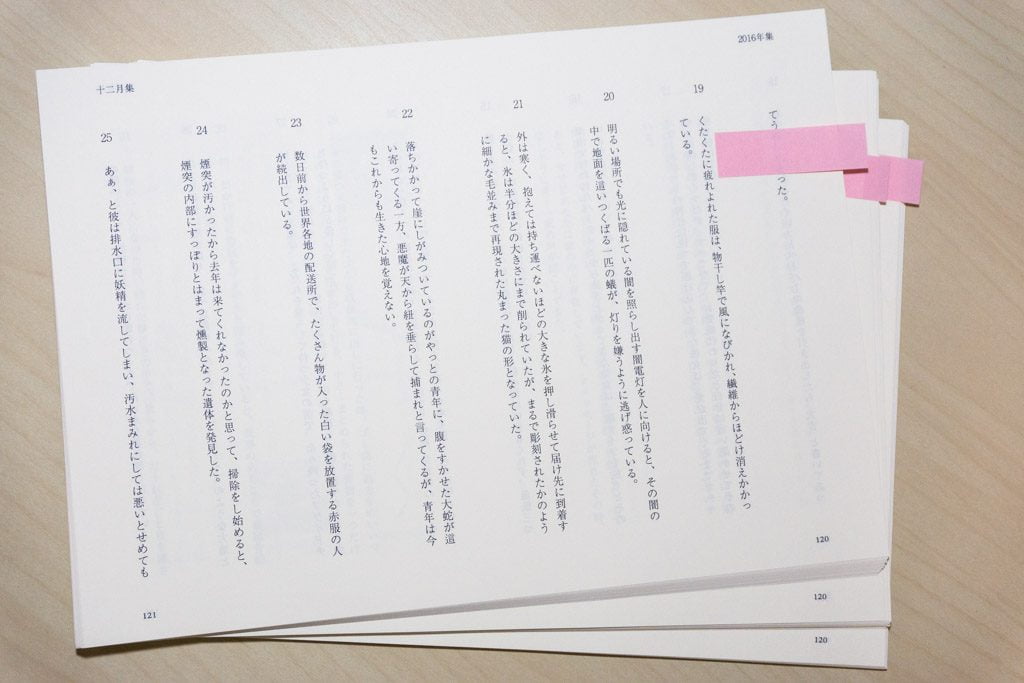 2016年集
て
った。
19
くたくたに疲れよれた服は、物干し竿で風になびかれ、繊維からほどけ消えかかっ
ている。
20
明るい場所でも光に隠れている闇を照らし出す闇電灯を人に向けると、その闇の
中で地面を這いつくばる一匹の蟻が、灯りを嫌うように逃げ惑っている。
21
外は寒く、抱えては持ち運べないほどの大きな氷を押し滑らせて届け先に到着す
ると、氷は半分ほどの大きさにまで削られていたが、まるで彫刻されたかのよう
に細かな毛並みまで再現された丸まった猫の形となっていた。
22
落ちかかって崖にしがみついているのがやっとの青年に、腹をすかせた大蛇が這
い寄ってくる一方、悪魔が天から紐を垂らして捕まれと言ってくるが、青年は今
もこれからも生きた心地を覚えない。
23
数日前から世界各地の配送所で、たくさん物が入った白い袋を放置する赤服の人
が続出している。
24
煙突が汚かったから去年は来てくれなかったのかと思って、掃除をし始めると、
煙突の内部にすっぽりとはまって燻製となった遺体を発見した。
25
あぁ、と彼は排水口に妖精を流してしまい、汚水まみれにしては悪いとせめても
十二月集
120
121
120
120